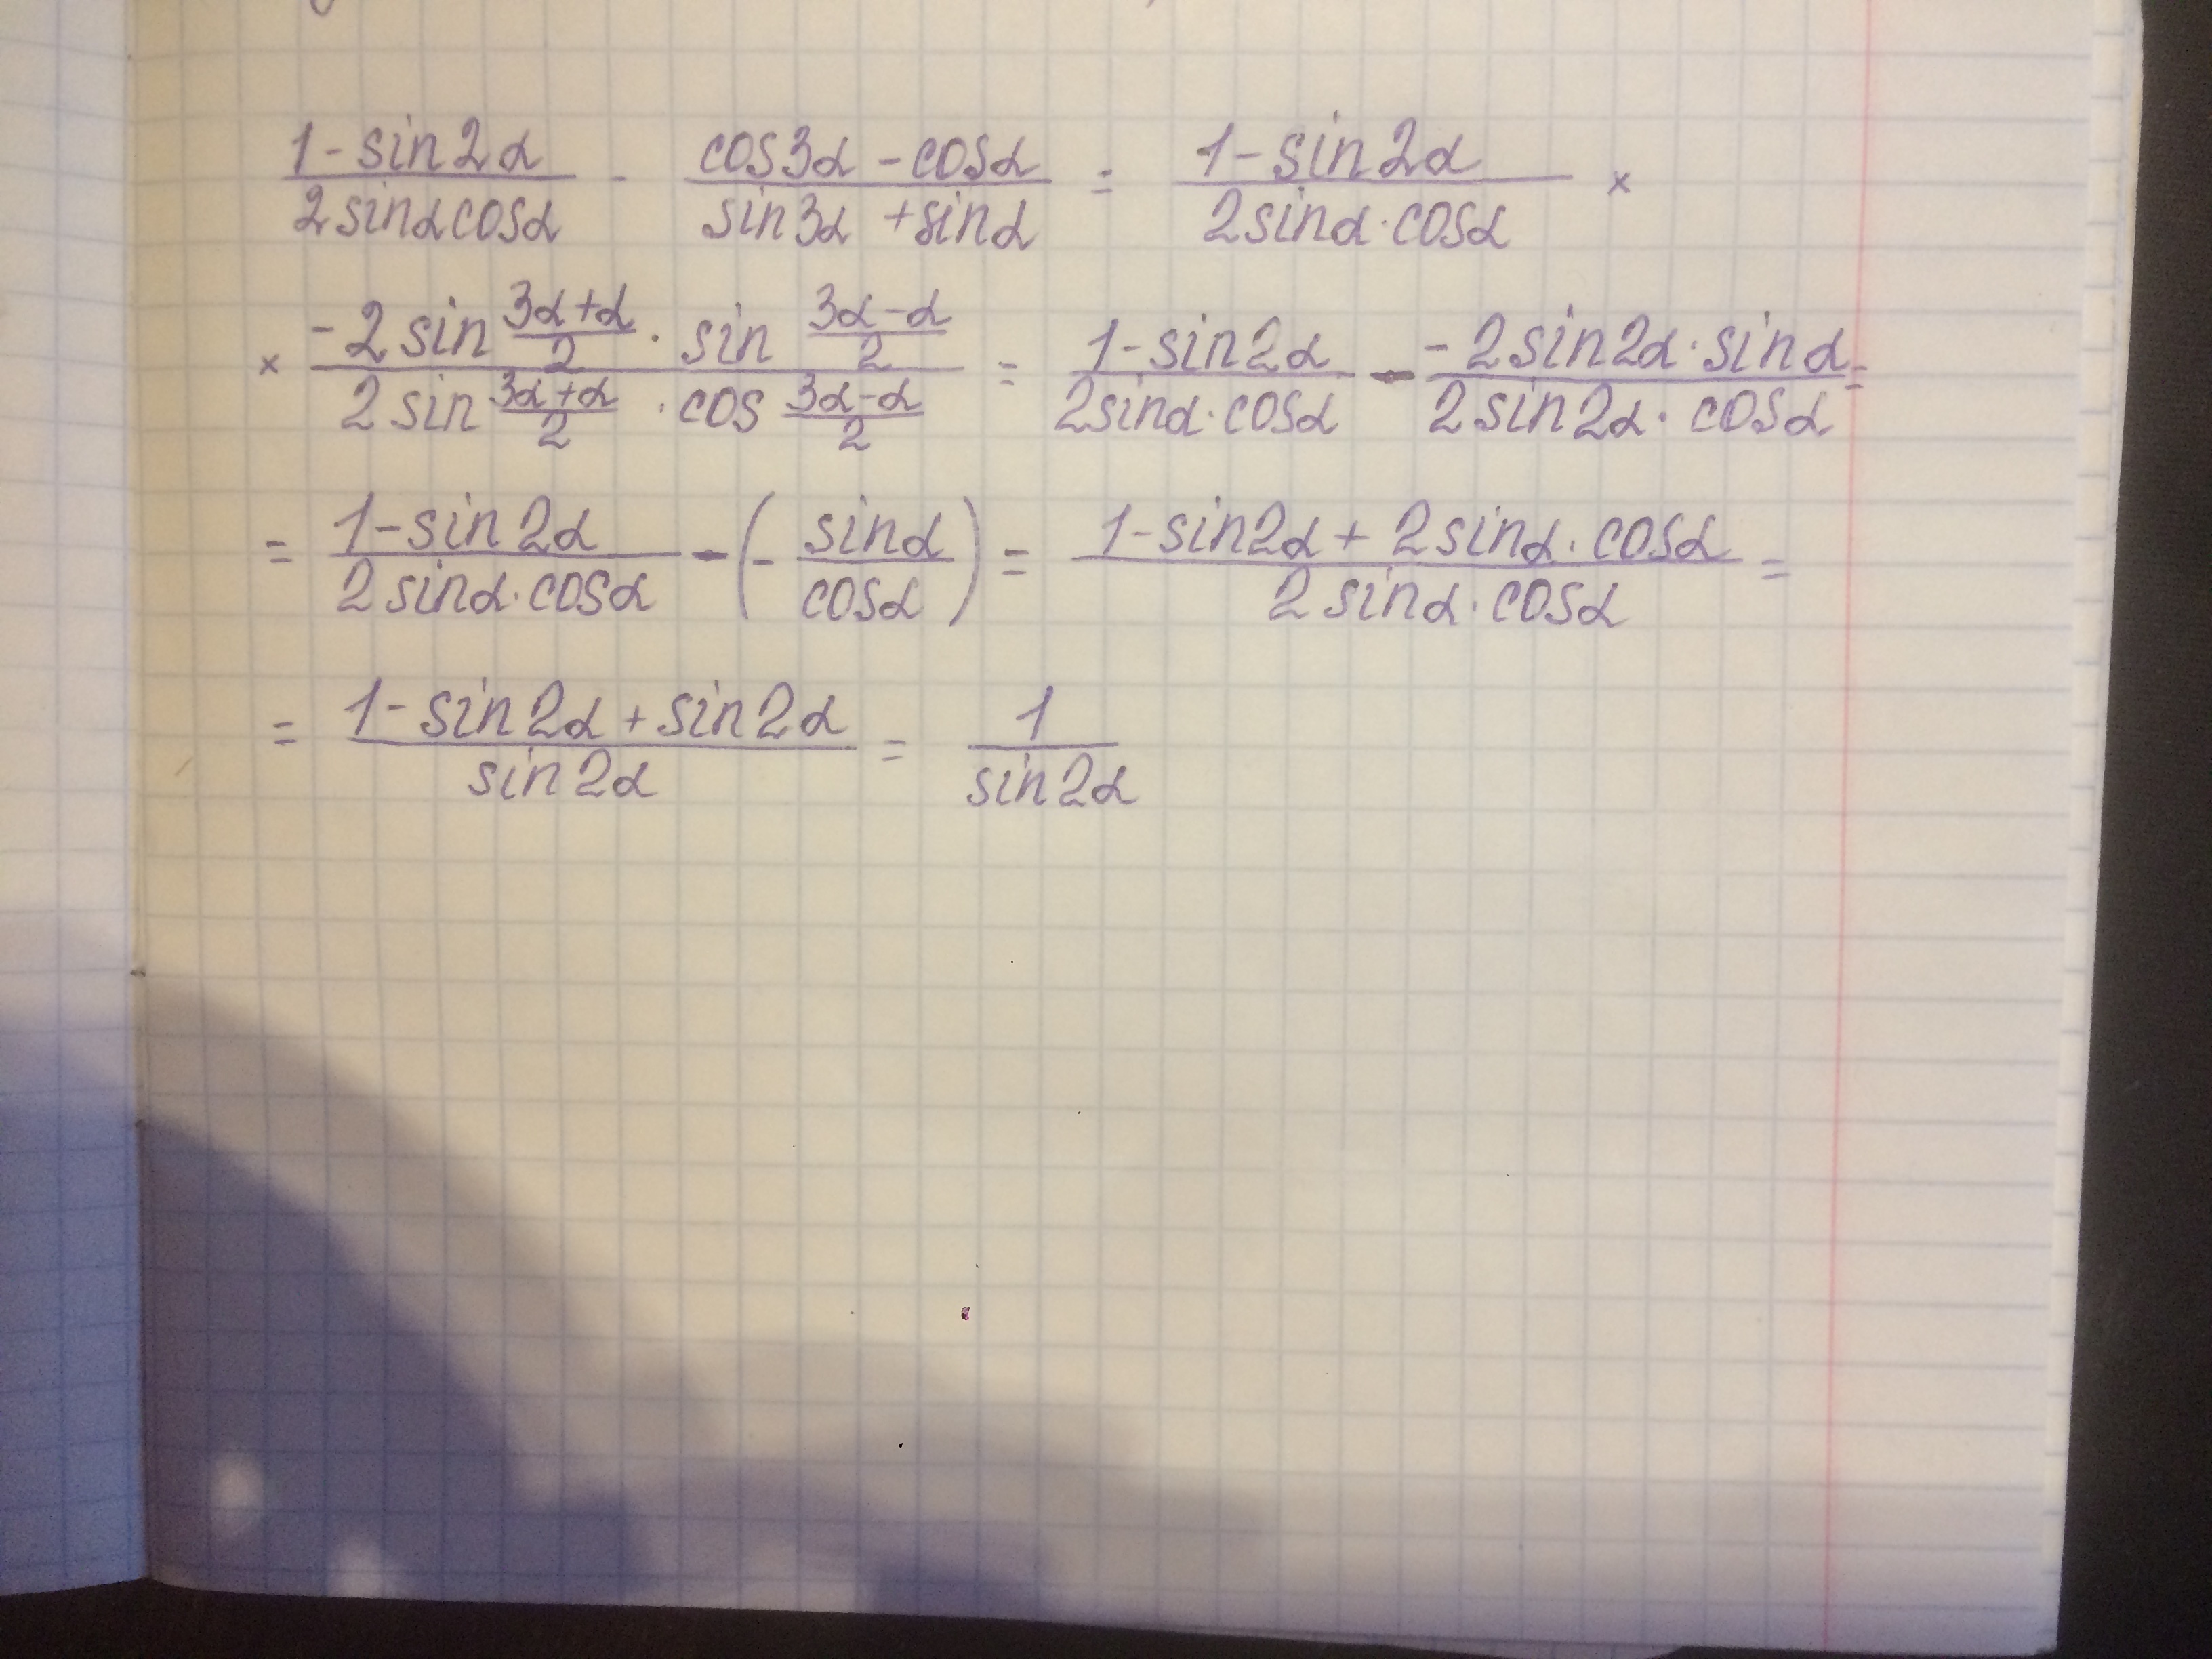 (1-sin2α)/(2sinαcosα) - (cos3α-cosα)/(sin3α+sinα) = (1-sin2α)/(2sinα·cosα) ×
× (-2sin (3α+α)/2 · sin (3α-α)/2)/(2sin (3α+α)/2 · cos (3α-α)/2) = (1-sin2α)/(2sinα·cosα) - (-2sin2α·sinα)/(2sin2α·cosα) =
= (1-sin2α)/(2sinα·cosα) - (- sinα/cosα) = (1-sin2α+2sinα·cosα)/(2sinα·cosα) =
= (1-sin2α+sin2α)/(sin2α) = 1/(sin2α)